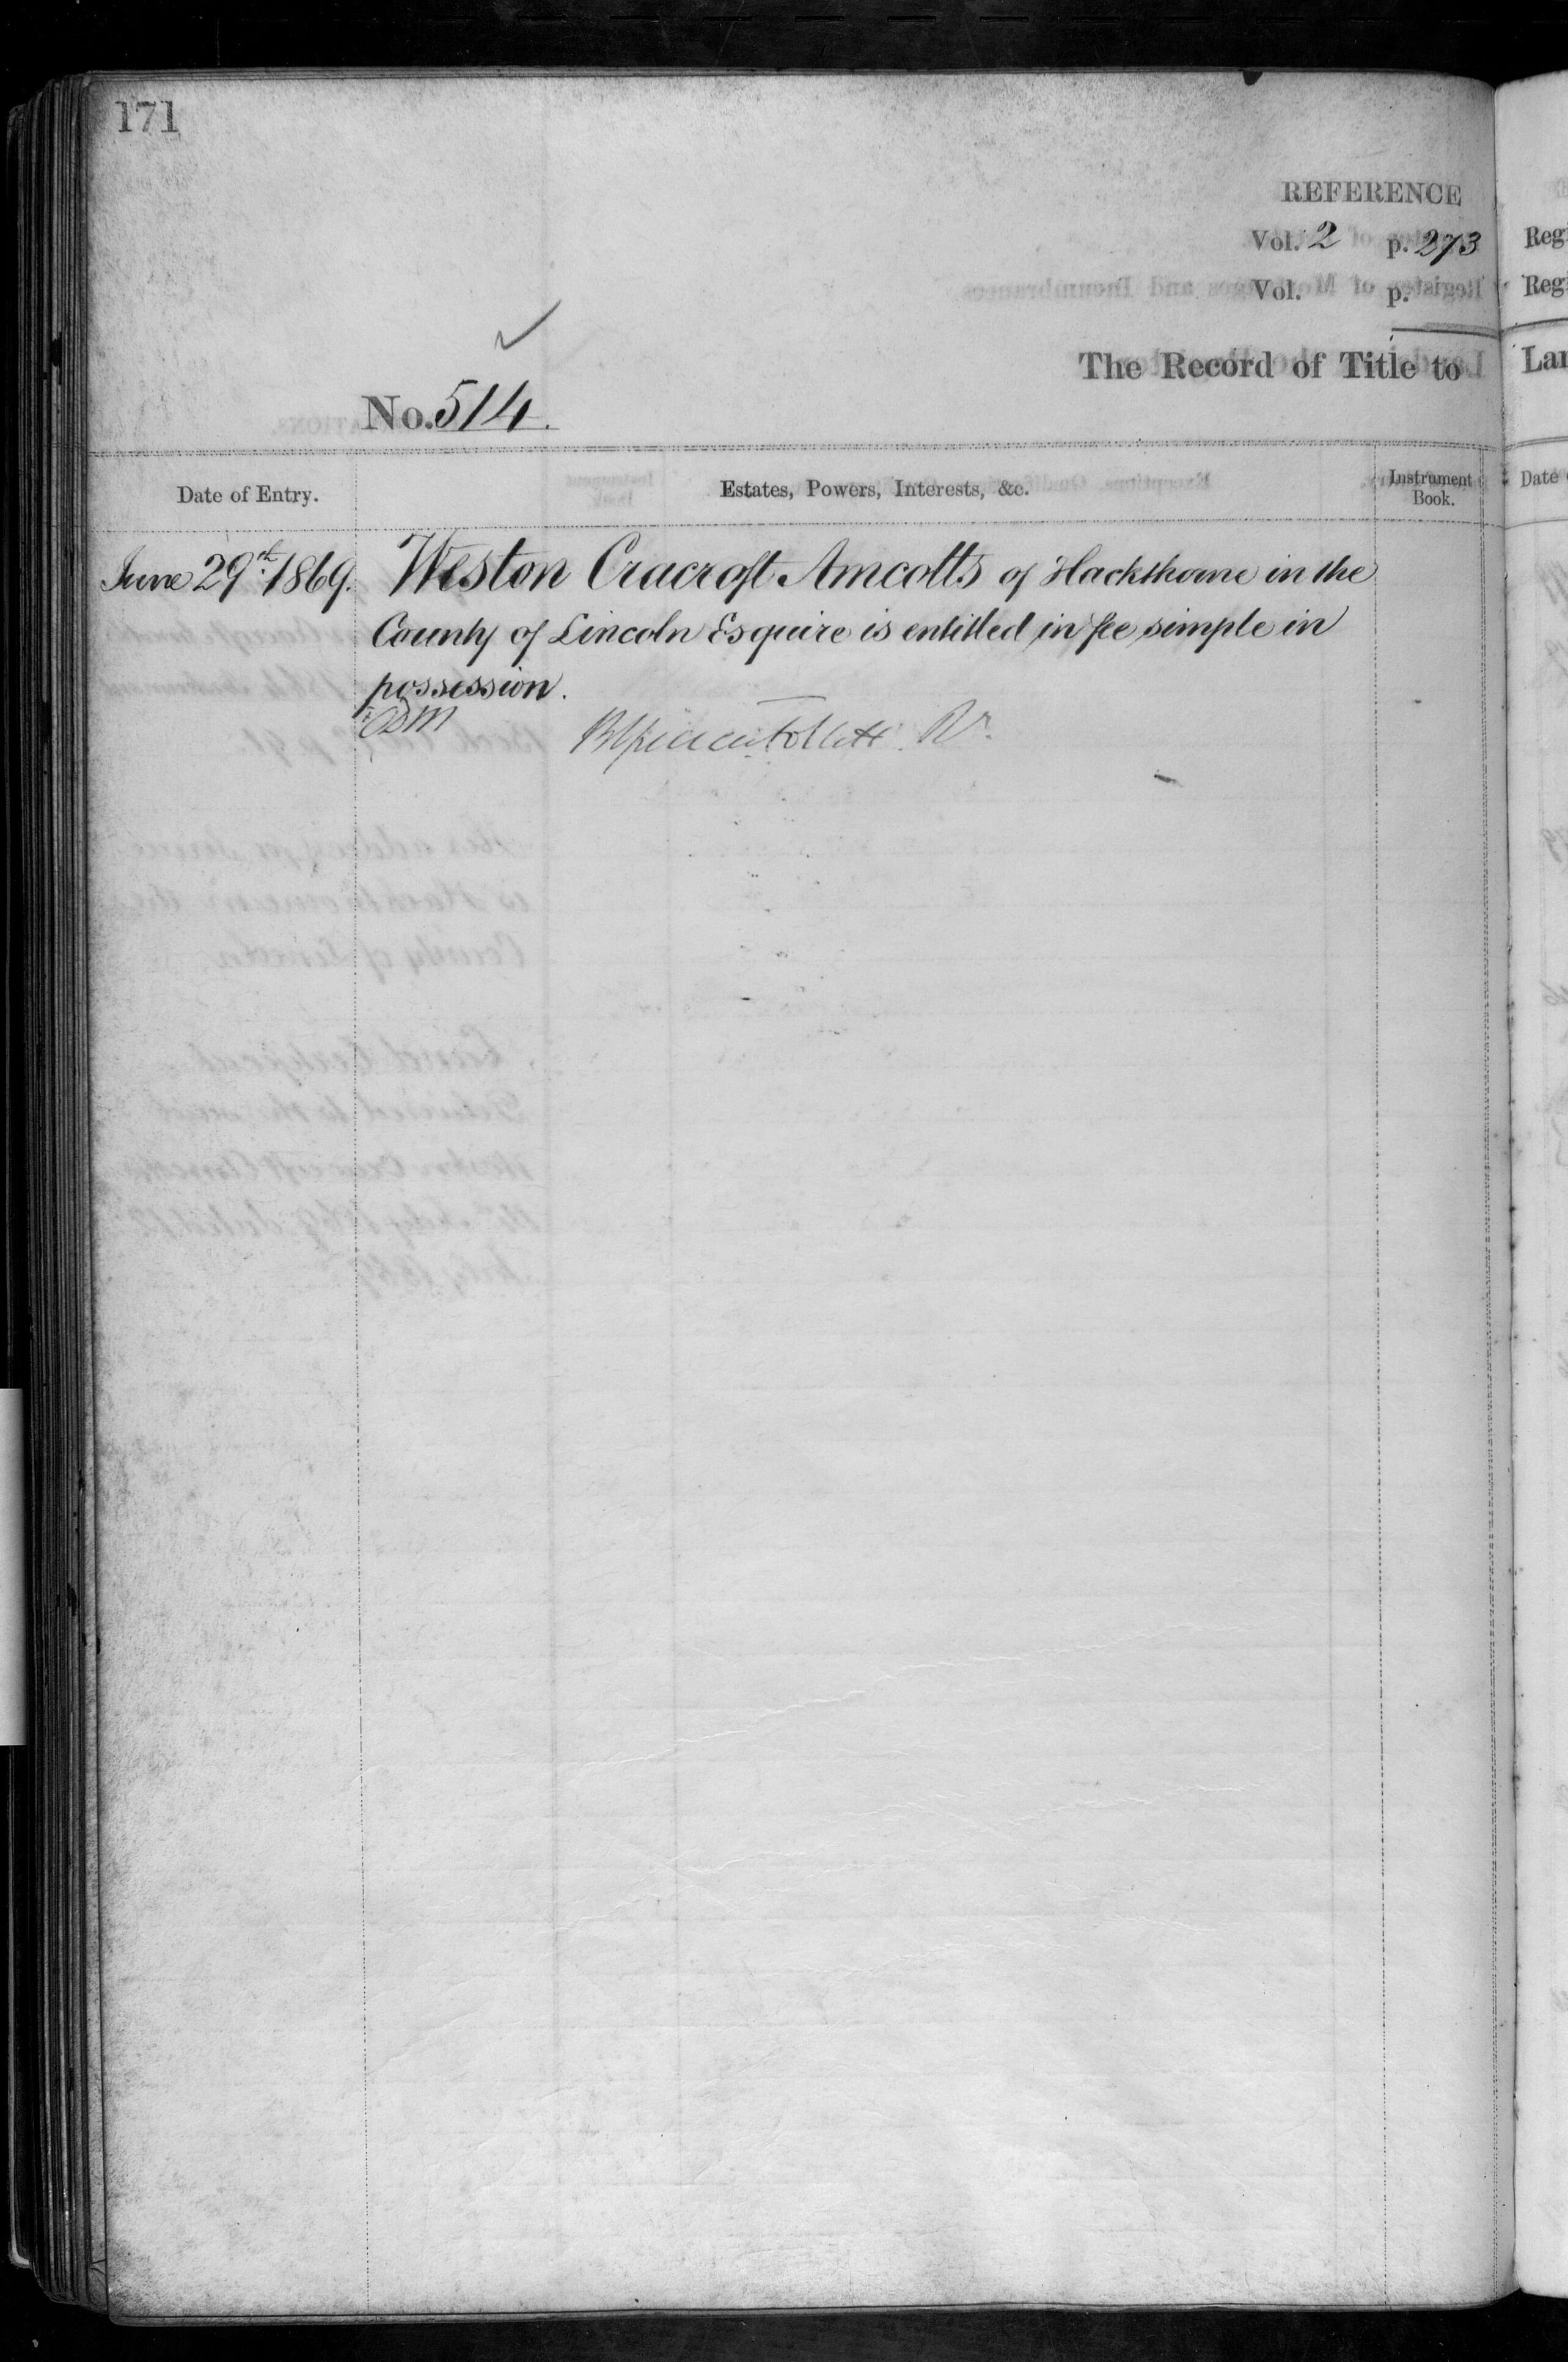 171
REFERENCE
Vol. 2 p. 273
Vol. p.
The Record of Title to
No. 514.
Date of Entry.
Estates, Powers, Interests, &c.
Instrument
Book.
June 29th 1869.
Weston Cracroft Amcotts of Hackthorne in the
County of Lincoln Esquire is entitled in fee simple in
possession.
Follett Rr.
Reg
Reg
Lan
Date